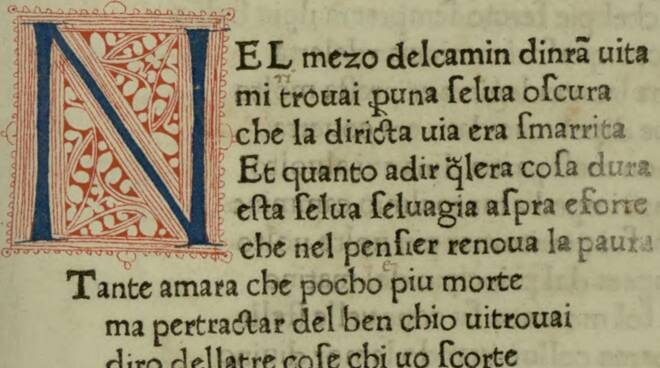 NEL mezo delcamin dinrã uita
mi trouai ꝑuna ſelua oſcura
che la diricta uia era ſmarrita
Et quanto adir q̃lera coſa dura
eſta ſelua ſeluagia aſpra eforte
che nel penſier renoua la paura
Tante amara che pocho piu morte
ma pertractar del ben chio uitrouai
diro dellatre coſe chi uo ſcorte